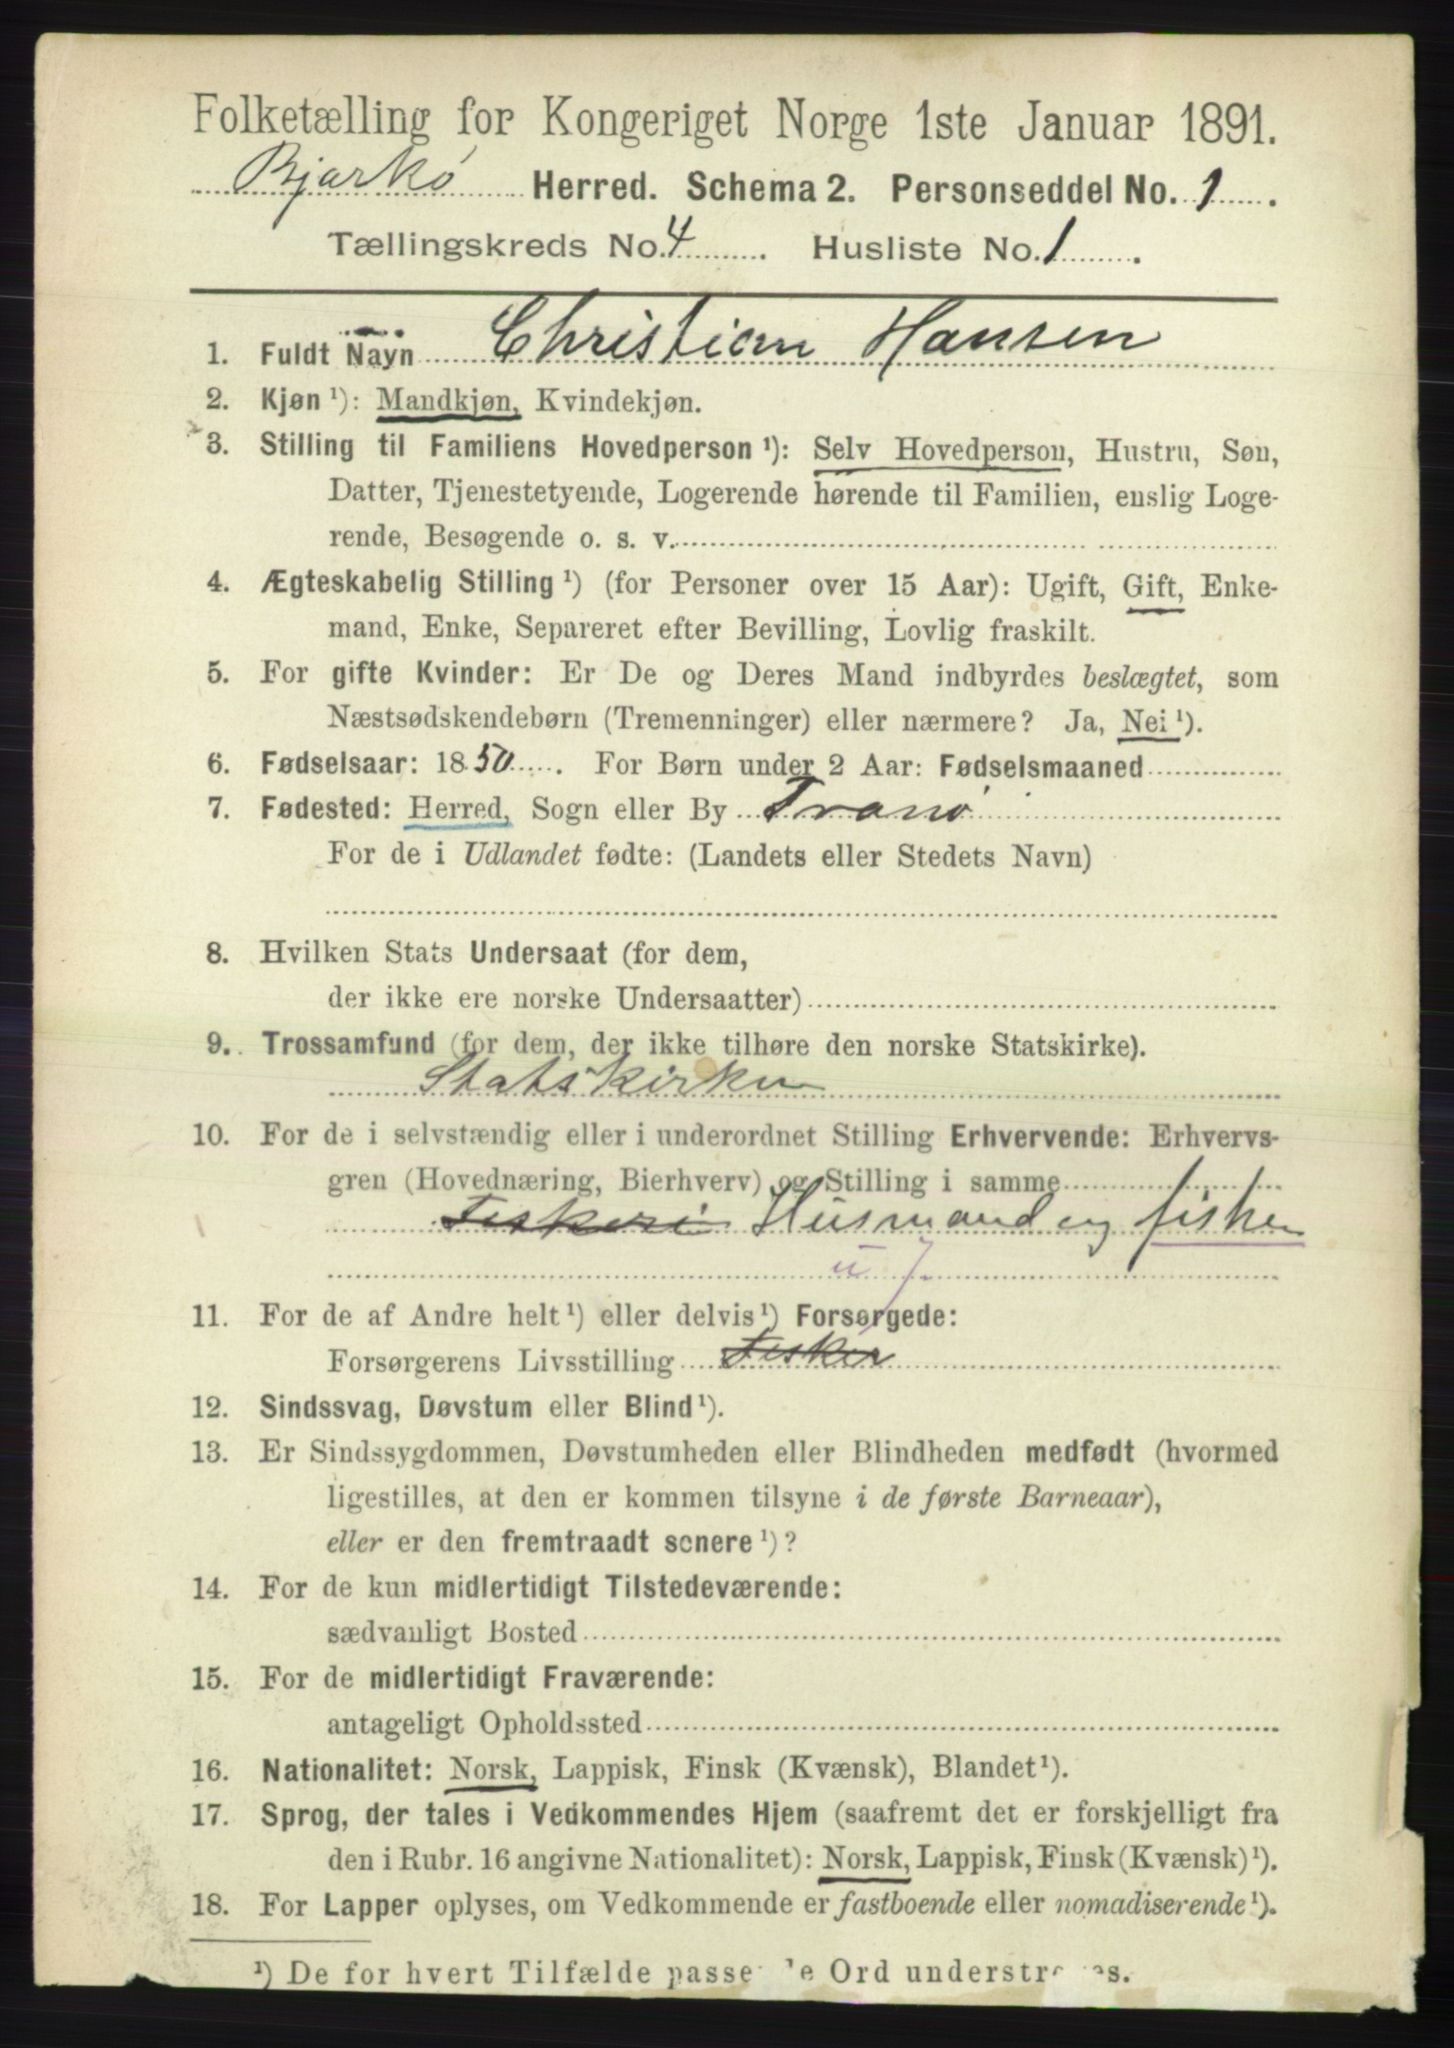 Folketælling for Kongeriget Norge 1ste Januar 1891.
Bjarkö Herred. Schema 2. Personseddel No. 1.
Tællingskreds No. 4. Husliste No. 1.
1. Fuldt Navn Christian Hansen
2. Kjøn ¹): Mandkjøn, Kvindekjøn.
3. Stilling til Familiens Hovedperson ¹): Selv Hovedperson, Hustru, Søn,
Datter, Tjenestetyende, Logerende hørende til Familien, enslig Loge-
rende, Besøgende o. s. v.
4. Ægteskabelig Stilling ¹) (for Personer over 15 Aar): Ugift, Gift, Enke-
mand, Enke, Separeret efter Bevilling, Lovlig fraskilt.
5. For gifte Kvinder: Er De og Deres Mand indbyrdes beslægtet, som
Næstsødskendebørn (Tremenninger) eller nærmere? Ja, Nei ¹).
6. Fødselsaar: 1850. For Børn under 2 Aar: Fødselsmaaned
7. Fødested: Herred, Sogn eller By Tranö
For de i Udlandet fødte: (Landets eller Stedets Navn)
8. Hvilken Stats Undersaat (for dem,
der ikke ere norske Undersaatter)
9. Trossamfund (for dem, der ikke tilhøre den norske Statskirke).
Statskirken
10. For de i selvstændig eller i underordnet Stilling Erhvervende: Erhvervs-
gren (Hovednæring, Bierhverv) og Stilling i samme
Fiskeri Husmand og fisker
u
11. For de af Andre helt ¹) eller delvis ¹) Forsørgede:
Forsørgerens Livsstilling Fisker
12. Sindssvag, Døvstum eller Blind ¹).
13. Er Sindssygdommen, Døvstumheden eller Blindheden medfødt (hvormed
ligestilles, at den er kommen tilsyne i de første Barneaar),
eller er den fremtraadt senere ¹)?
14. For de kun midlertidigt Tilstedeværende:
sædvanligt Bosted
15. For de midlertidigt Fraværende:
antageligt Opholdssted
16. Nationalitet: Norsk, Lappisk, Finsk (Kvænsk), Blandet ¹).
17. Sprog, der tales i Vedkommendes Hjem (saafremt det er forskjelligt fra
den i Rubr. 16 angivne Nationalitet): Norsk, Lappisk, Finsk (Kvænsk) ¹).
18. For Lapper oplyses, om Vedkommende er fastboende eller nomadiserende ¹).
¹) De for hvert Tilfælde passende Ord understreges.